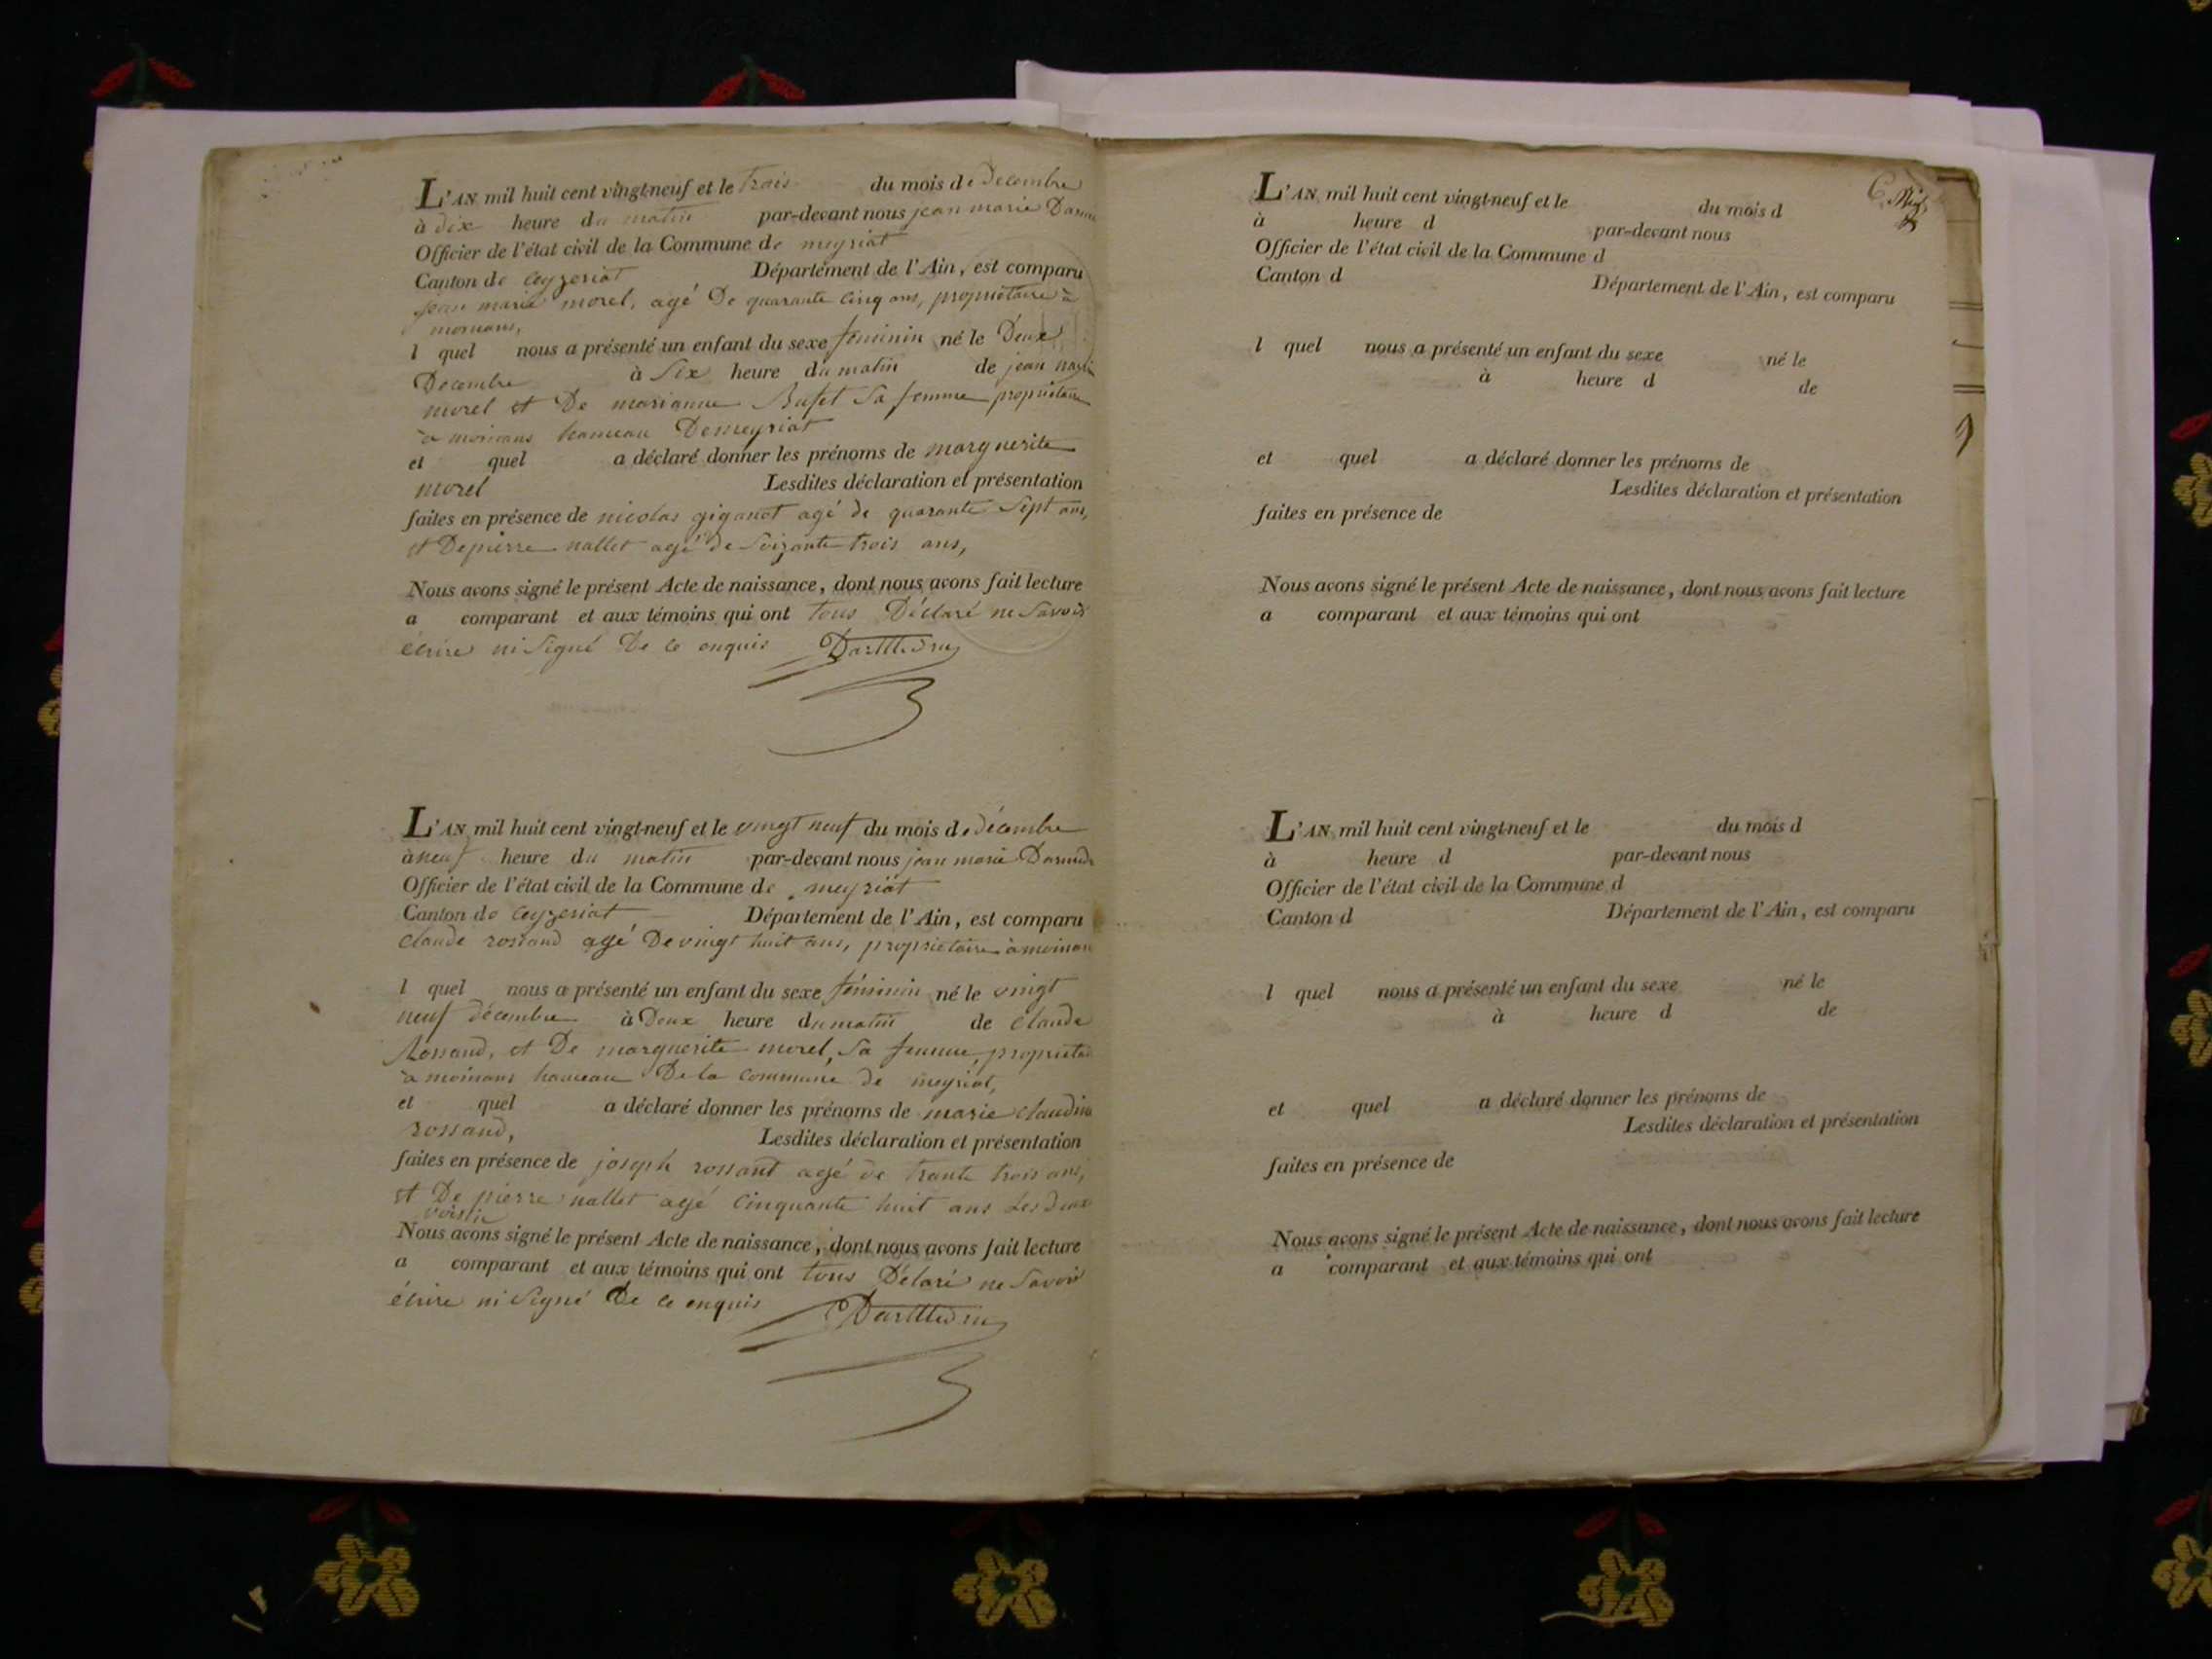 L'AN mil huit cent vingt-neuf et le trois du mois de Decembre
à dix heure du matin par-devant nous jean marie
Officier de l'état civil de la Commune de meyriat
Canton de ceyzeriat Département de l'Ain, est comparu
jean marie morel, agé De quarante cinq ans, propriétaire à
l quel nous a présenté un enfant du sexe feminin né le Deux
Decembre à Six heure du matin de jean
morel et De marianne Bufet Sa femme propriétaire
à moinans hameau De meyriat
et quel a déclaré donner les prénoms de marguerite
morel Lesdites déclaration et présentation
faites en présence de nicolas giganet agé de quarante Sept ans,
et De pierre nallet agé de Soizante trois ans,
Nous avons signé le présent Acte de naissance, dont nous avons fait lecture
a comparant et aux témoins qui ont tous Déclaré ne Savoir
écrire ni Signé De ce enquis
L'AN mil huit cent vingt-neuf et le vingt neuf du mois de décembre
à neuf heure du matin par-devant nous jean marie
Officier de l'état civil de la Commune de meyriat
Canton de ceyzeriat Département de l'Ain, est comparu
claude rossand agé De vingt huit ans, propriétaire à moinans
l quel nous a présenté un enfant du sexe féminin né le vingt
neuf décembre à Deux heure du matin de claude
Rossand, et De marguerite morel, Sa femme, propriétai
à moinans hameau De la commune de meyriat,
et quel a déclaré donner les prénoms de marie claudine
rossand, Lesdites déclaration et présentation
faites en présence de joseph rossant agé de trante trois ans,
et De pierre nallet agé cinquante huit ans Les deux
voisin
Nous avons signé le présent Acte de naissance, dont nous avons fait lecture
a comparant et aux témoins qui ont tous Délaré ne Savoir
écrire ni Signé De ce enquis
L'AN mil huit cent vingt-neuf et le du mois d
à heure d par-devant nous
Officier de l'état civil de la Commune d
Canton d Département de l'Ain, est comparu
l quel nous a présenté un enfant du sexe né le
à heure d de
et quel a déclaré donner les prénoms de
Lesdites déclaration et présentation
faites en présence de
Nous avons signé le présent Acte de naissance, dont nous avons fait lecture
a comparant et aux témoins qui ont
L'AN mil huit cent vingt-neuf et le du mois d
à heure d par-devant nous
Officier de l'état civil de la Commune d
Canton d Département de l'Ain, est comparu
l quel nous a présenté un enfant du sexe né le
à heure d de
et quel a déclaré donner les prénoms de
Lesdites déclaration et présentation
faites en présence de
Nous avons signé le présent Acte de naissance, dont nous avons fait lecture
a comparant et aux témoins qui ont